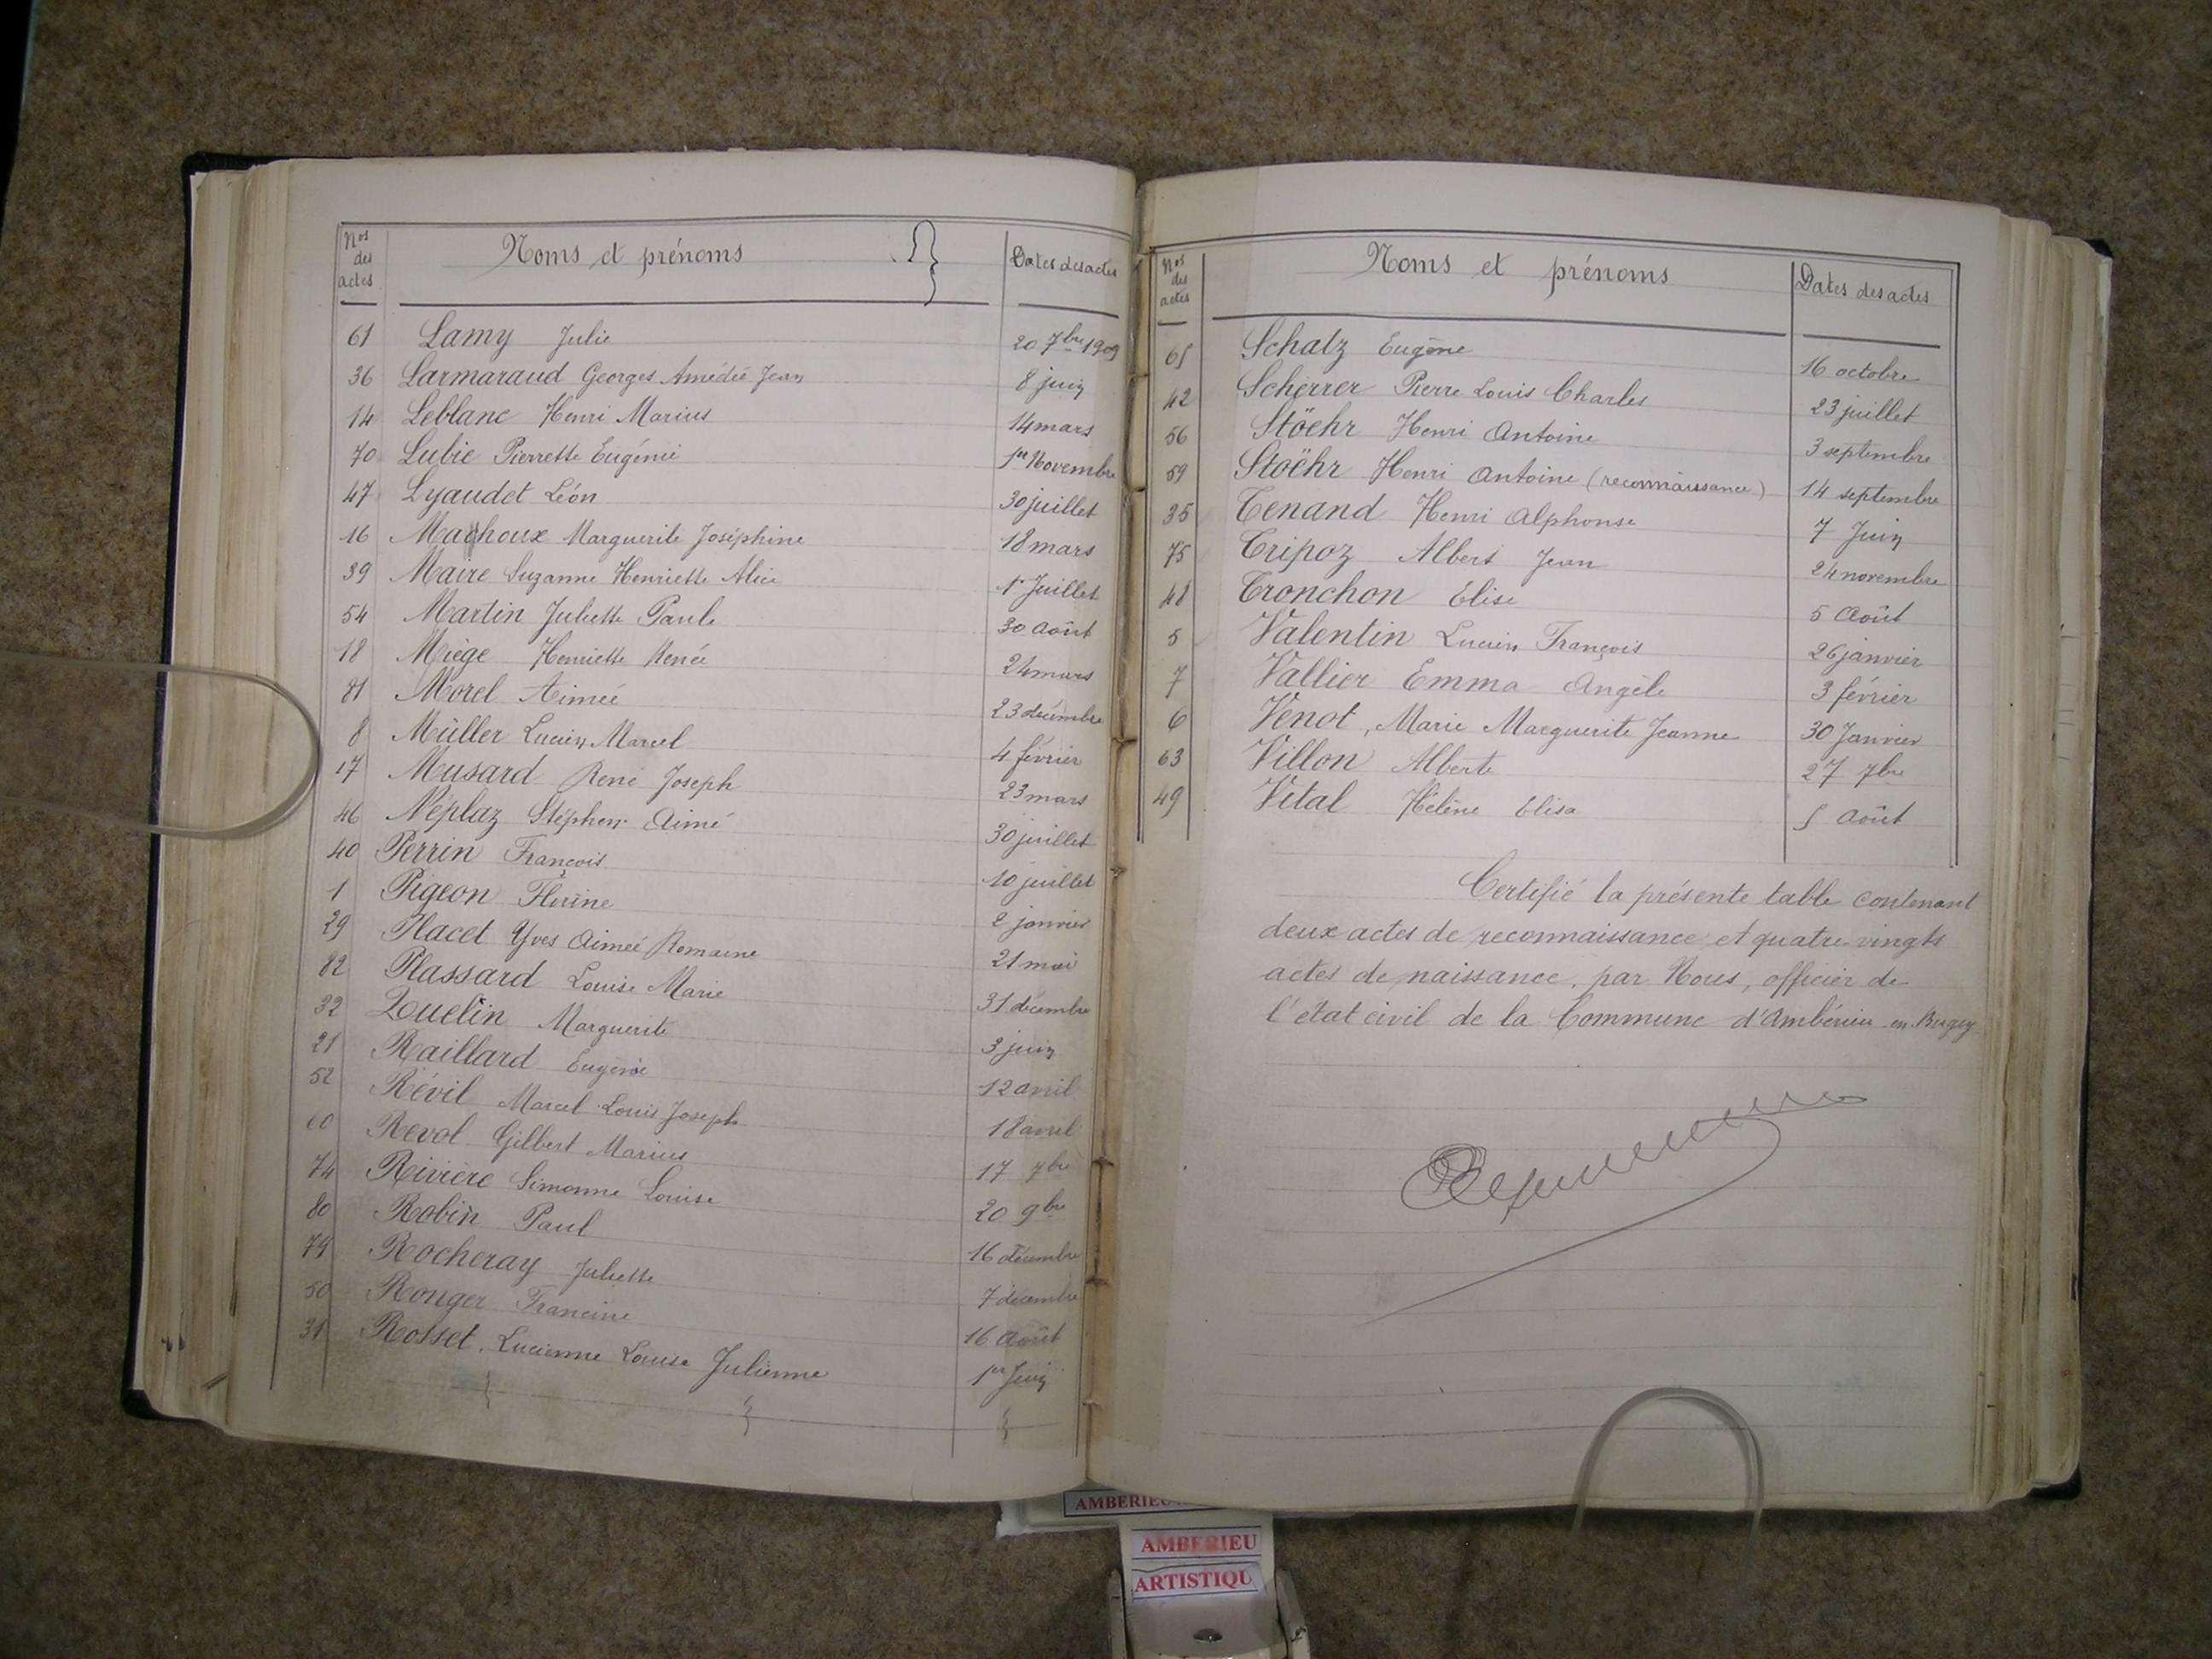 Nos des actes Noms et prénoms Dates des actes
61 Lamy Julie 20 7bre 1909
36 Larmaraud Georges Amédée Jean 8 juin
14 Leblanc Henri Marius 14 mars
70 Lubie Pierrette Eugénie 1er Novembre
47 Lyaudet Léon 30 juillet
16 Machoux Marguerite Joséphine 18 mars
39 Maire Suzanne Henriette Alice 1r Juillet
54 Martin Juliette Paule 30 Août
18 Miège Henriette Renée 24 mars
81 Morel Aimée 23 décembre
8 Müller Lucien Marcel 4 février
17 Musard René Joseph 23 mars
46 Néplaz Stéphen Aimé 30 juillet
40 Perrin François 10 juillet
1 Pigeon Florine 2 janvier
29 Placet Yves Aimée Romaine 21 mai
82 Plassard Louise Marie 31 décembre
32 Quelin Marguerite 3 juin
21 Raillard Eugénie 12 avril
52 Révil Marcel Louis Joseph 18 avril
60 Revol Gilbert Marius 17 7bre
74 Rivière Simonne Louise 20 9bre
80 Robin Paul 16 décembre
79 Rocheray Juliette 7 décembre
50 Ronger Francine 16 Août
31 Rosset, Lucienne Louise Julienne 1er Juin
Nos des actes Noms et prénoms Dates des actes
65 Schatz Eugène 16 octobre
42 Scherrer Pierre Louis Charles 23 juillet
56 Stöehr Henri Antoine 3 septembre
59 Stoëhr Henri Antoine (reconnaissance) 14 septembre
35 Tenand Henri Alphonse 7 Juin
75 Tripoz Albert Jean 24 novembre
48 Tronchon Elise 5 Août
5 Valentin Lucien François 26 janvier
7 Vallier Emma Angèle 3 février
6 Venot, Marie Marguerite Jeanne 30 Janvier
63 Villon Alberte 27 7bre
49 Vital Hélène Elisa 5 Août
Certifié la présente table contenant
deux actes de reconnaissance et quatre-vingts
actes de naissance, par Nous, officier de
l'état civil de la Commune d'Ambérieu-en-Bugey
AMBERIEU
AMBERIEU
ARTISTIQU